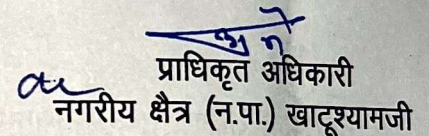 प्राधिकृत अधिकारी
नगरीय क्षैत्र (न.पा.) खाटूश्यामजी